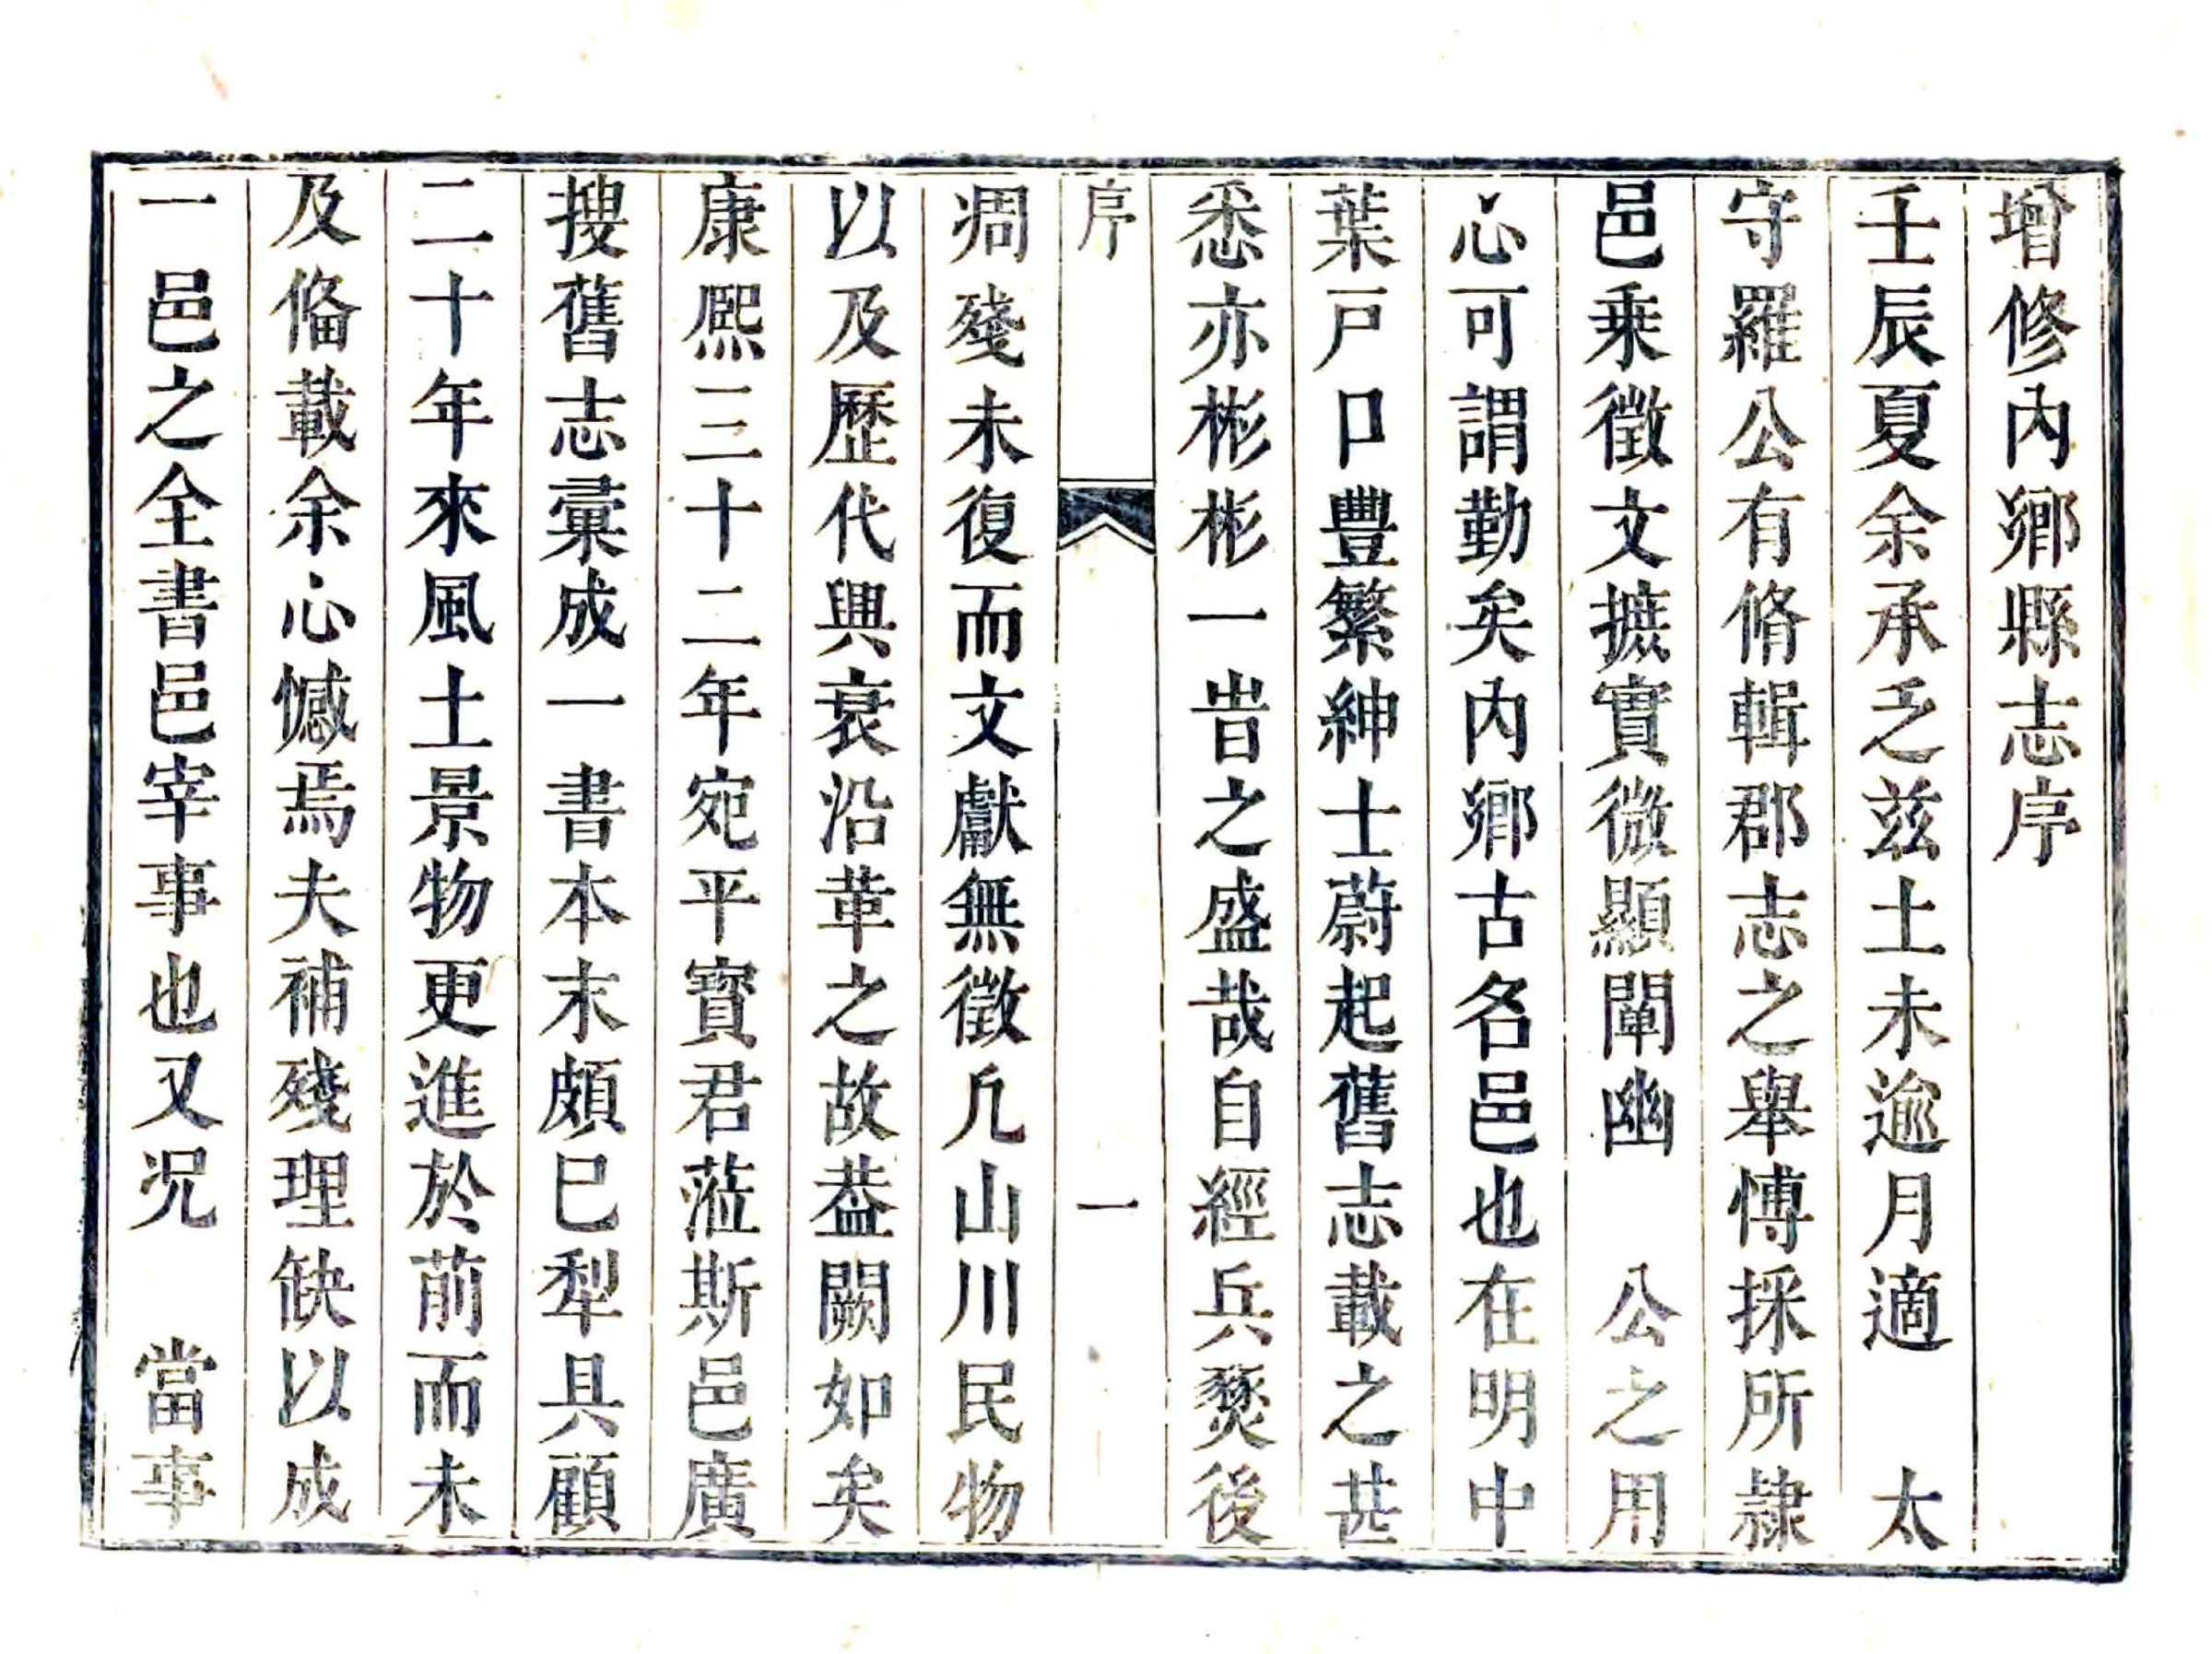 增修内鄉縣志序
壬辰夏余承乏兹土未逾月適　太
守羅公有脩輯郡志之舉博採所隸
邑乗徵文摭實微顯闡幽　公之用
心可謂勤矣内鄉古名邑也在明中
葉戸口豐繁紳士蔚起舊志載之甚
悉亦彬彬一旹之盛哉自經兵燹後
序　一
凋殘未復而文獻無徵凢山川民物
以及歷代興衰沿革之故葢闕如矣
康熈三十二年宛平寳君蒞斯邑廣
搜舊志彚成一書本末頗巳犁具顧
二十年來風土景物更進於前而未
及俻載余心憾焉夫補殘理缺以成
一邑之全書邑宰事也又况　當事